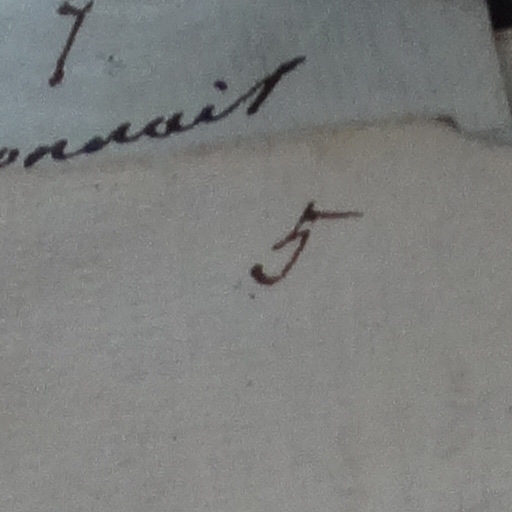 7
onnait
5